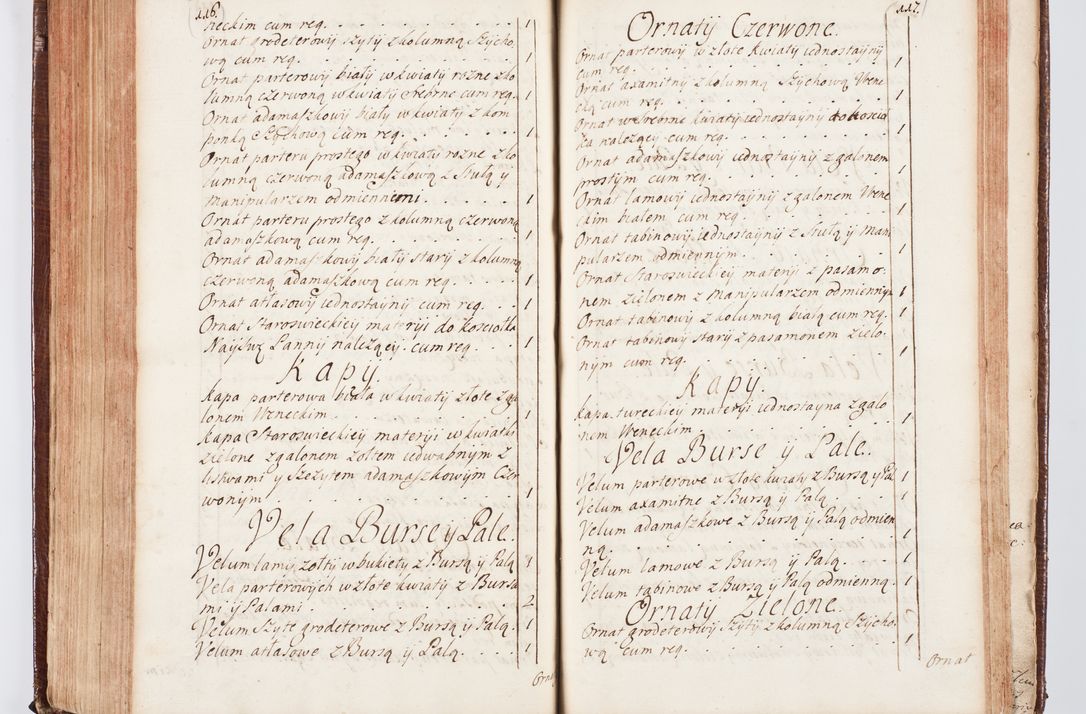 116.
neckim cum req. 1
Ornat grodeterowÿ szÿtÿ z kolumną Szÿcho-
wą cum req. 1
Ornat parterowÿ białÿ w kwiatÿ rozne z ko
lumną czerwoną w kwiatÿ srebrne cum req. 1
Ornat adamaszkowÿ białÿ w kwiatÿ z kom
ponką cum req. 1
Ornat parteru prostego w kwiatÿ rozne z ko
lumną czerwoną adamaszkową z Stułą ÿ
manipularzem odmiennemi. 1
Ornat parteru prostego z kolumną czerwoną
adamaszkową cum req. 1
Ornat adamaszkowÿ białÿ starÿ z kolumną
czerwoną adamaszkową cum req. 1
Ornat atłasowÿ iednostaÿnÿ cum req. 1
Ornat Staroswieckieÿ materÿi do kosciołka
Naÿśw: Pannÿ należąceÿ cum req. 1
Kapÿ.
Kapa parterowa biała w kwiatÿ złote z ga
lonem Weneckim 1
Kapa Staroswieckieÿ materÿi w kwiatki
zielone z galonem żołtem iedwabnÿm z
listwami ÿ szczÿtem adamaszkowÿm czer
wonÿm 1
Vela Burse ÿ Pale.
Velum lamÿ żołtÿ w bukietÿ z Bursą ÿ Palą 1
Vela parterowÿch w złote kwiatÿ z Bursa
mi ÿ Palami 2
Velum szÿte grodeterowe z Bursą ÿ Palą. 1
Velum atłasowe z Bursą ÿ Palą 1
Ornat
117.
Ornatÿ Czerwone.
Ornat parterowÿ w złote kwiatÿ iednostaÿnÿ
cum req. 1
Ornat axamitnÿ z kolumną Szÿchową Wene
cką cum req. 1
Ornat w srebrne kwiatÿ iednostaÿnÿ do koscio
ła należąceÿ cum req. 1
Ornat adamaszkowÿ iednostaÿnÿ z galonem
prostÿm cum req. 1
Ornat lamowÿ iednostaÿnÿ z galonem Wene
ckim białem cum req. 1
Ornat tabinowÿ iednostaÿnÿ z Stułą ÿ mani
pularzem odmiennÿm. 1
Ornat Staroswieckieÿ materÿi z pasamo-
nem zielonem z manipularzem odmiennÿm 1
Ornat tabinowÿ z kolumną białą cum req. 1
Ornat tabinowÿ starÿ z pasamonem zielo-
nÿm cum req. 1
Kapÿ.
Kapa tureckieÿ materÿi iednostaÿna z galo
nem Weneckim. 1
Vela Burse ÿ Pale.
Velum parterowe w złote kwiatÿ z Bursą ÿ Pal 1
Velum axamitne z Bursą ÿ Palą 1
Velum adamaszkowe z Bursą ÿ Palą odmien
ną. 1
Velum lamowe z Bursą ÿ Palą. 1
Velum tabinowe z Bursą ÿ Palą odmienną. 1
Ornatÿ Zielone.
Ornat grodeterowÿ Szÿtÿ z kolumną Szÿcho-
wą cum req. 1
Ornat